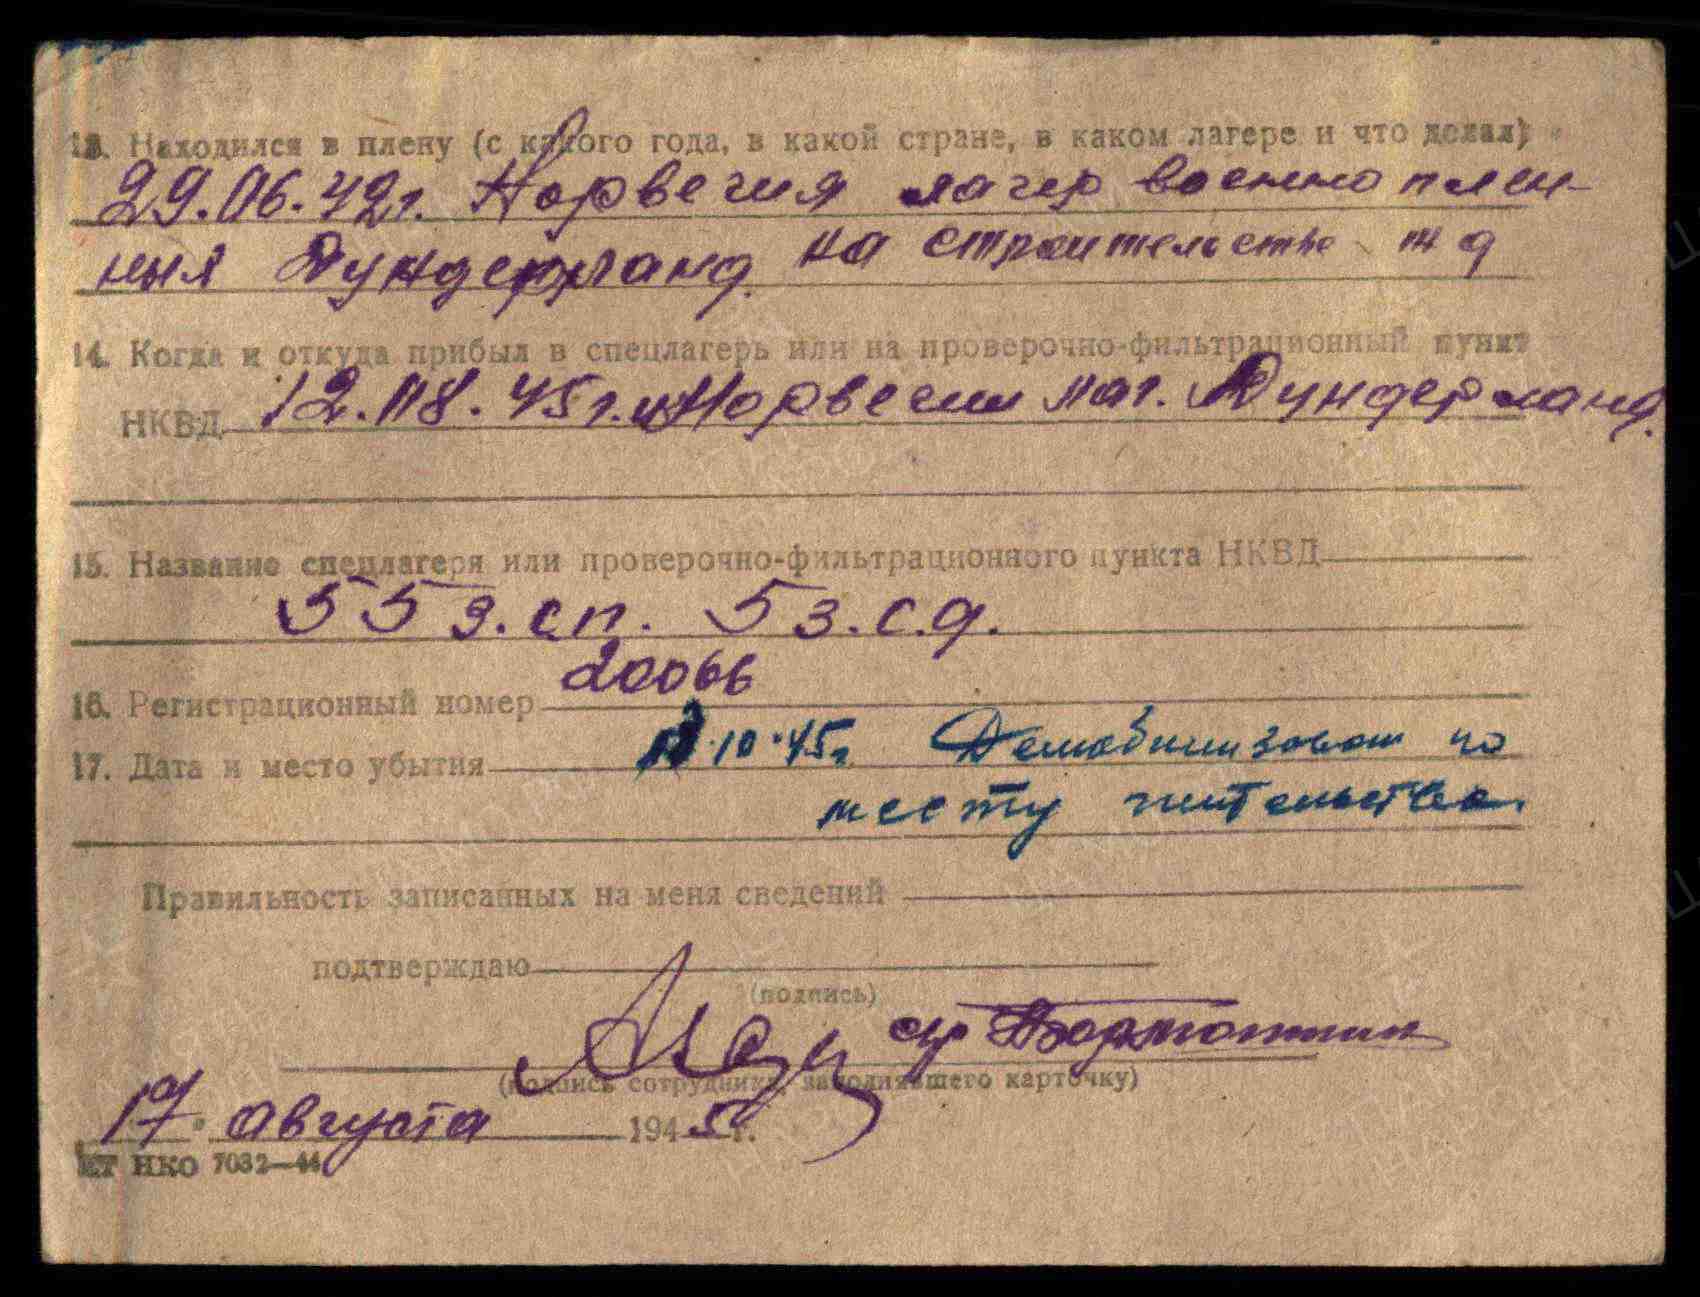 13. Находился в плену (с какого года, в какой стране, в каком лагере и что делал)
29.06.42г. Норвегия лагер военно плен-
ныя Дундерланд на строительство ж д
14. Когда и откуда прибыл в спецлагерь или на проверочно-фильтрационный пункт
НКВД 12.08.45г. Норвегии лаг. Дундерланд.
15. Название спецлагеря или проверочно-фильтрационного пункта НКВД
55 з.сп. 5 з.с.д.
16. Регистрационный номер 20066
17. Дата и место убытия 10.45г Демобилизован по
месту жительства.
Правильность записанных на меня сведений
подтверждаю
(подпись)
(подпись сотрудника, заполнявшего карточку)
17. августа 1945 г.
ВТ НКО 7032—44